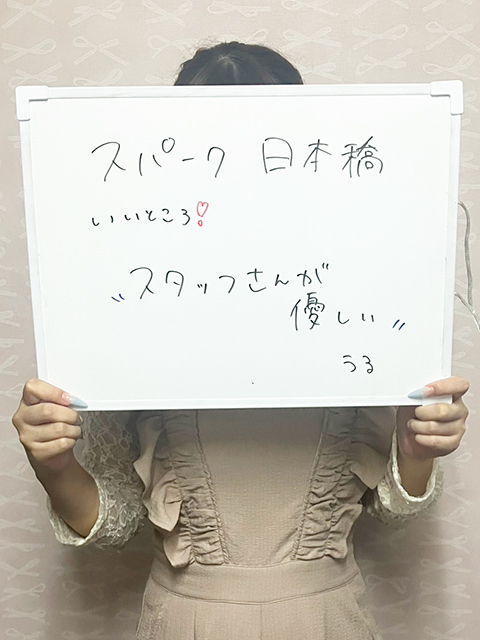 スパーク 日本橋
いいところ!
"スタッフさんが
優しい"
うる